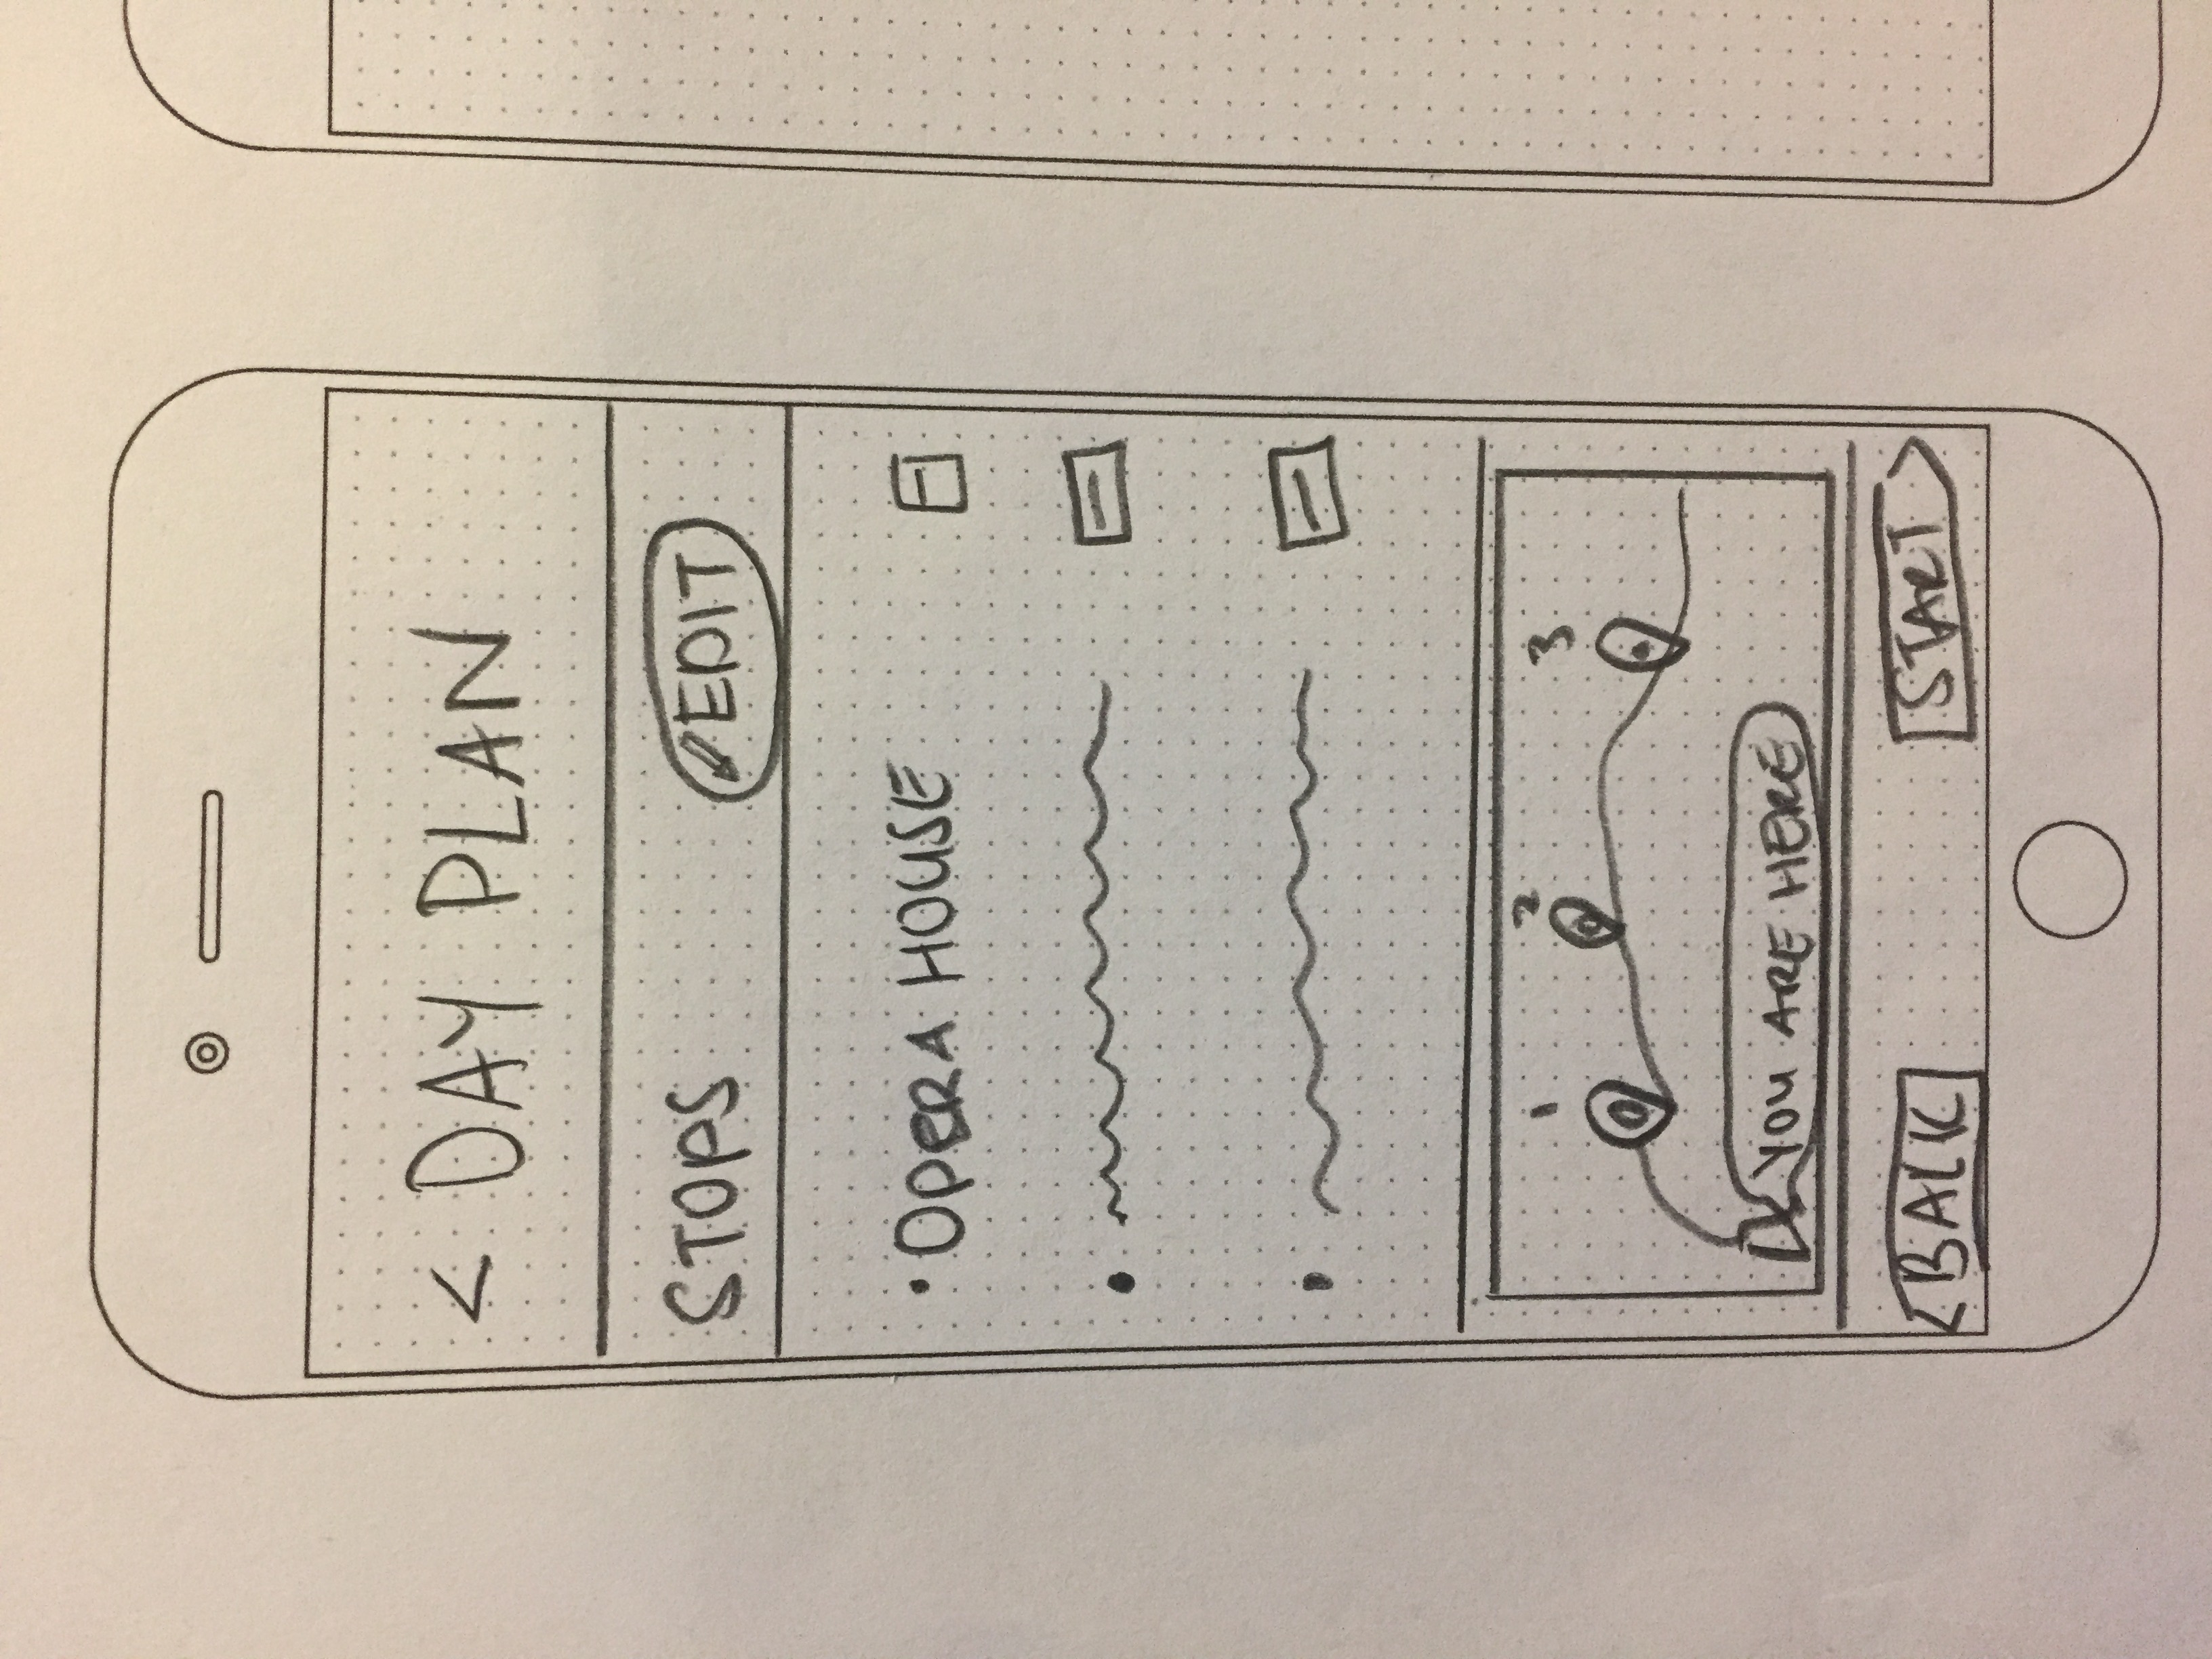 < DAY PLAN
STOPS EDIT
• OPERA HOUSE
1 2 3
YOU ARE HERE
BACK START